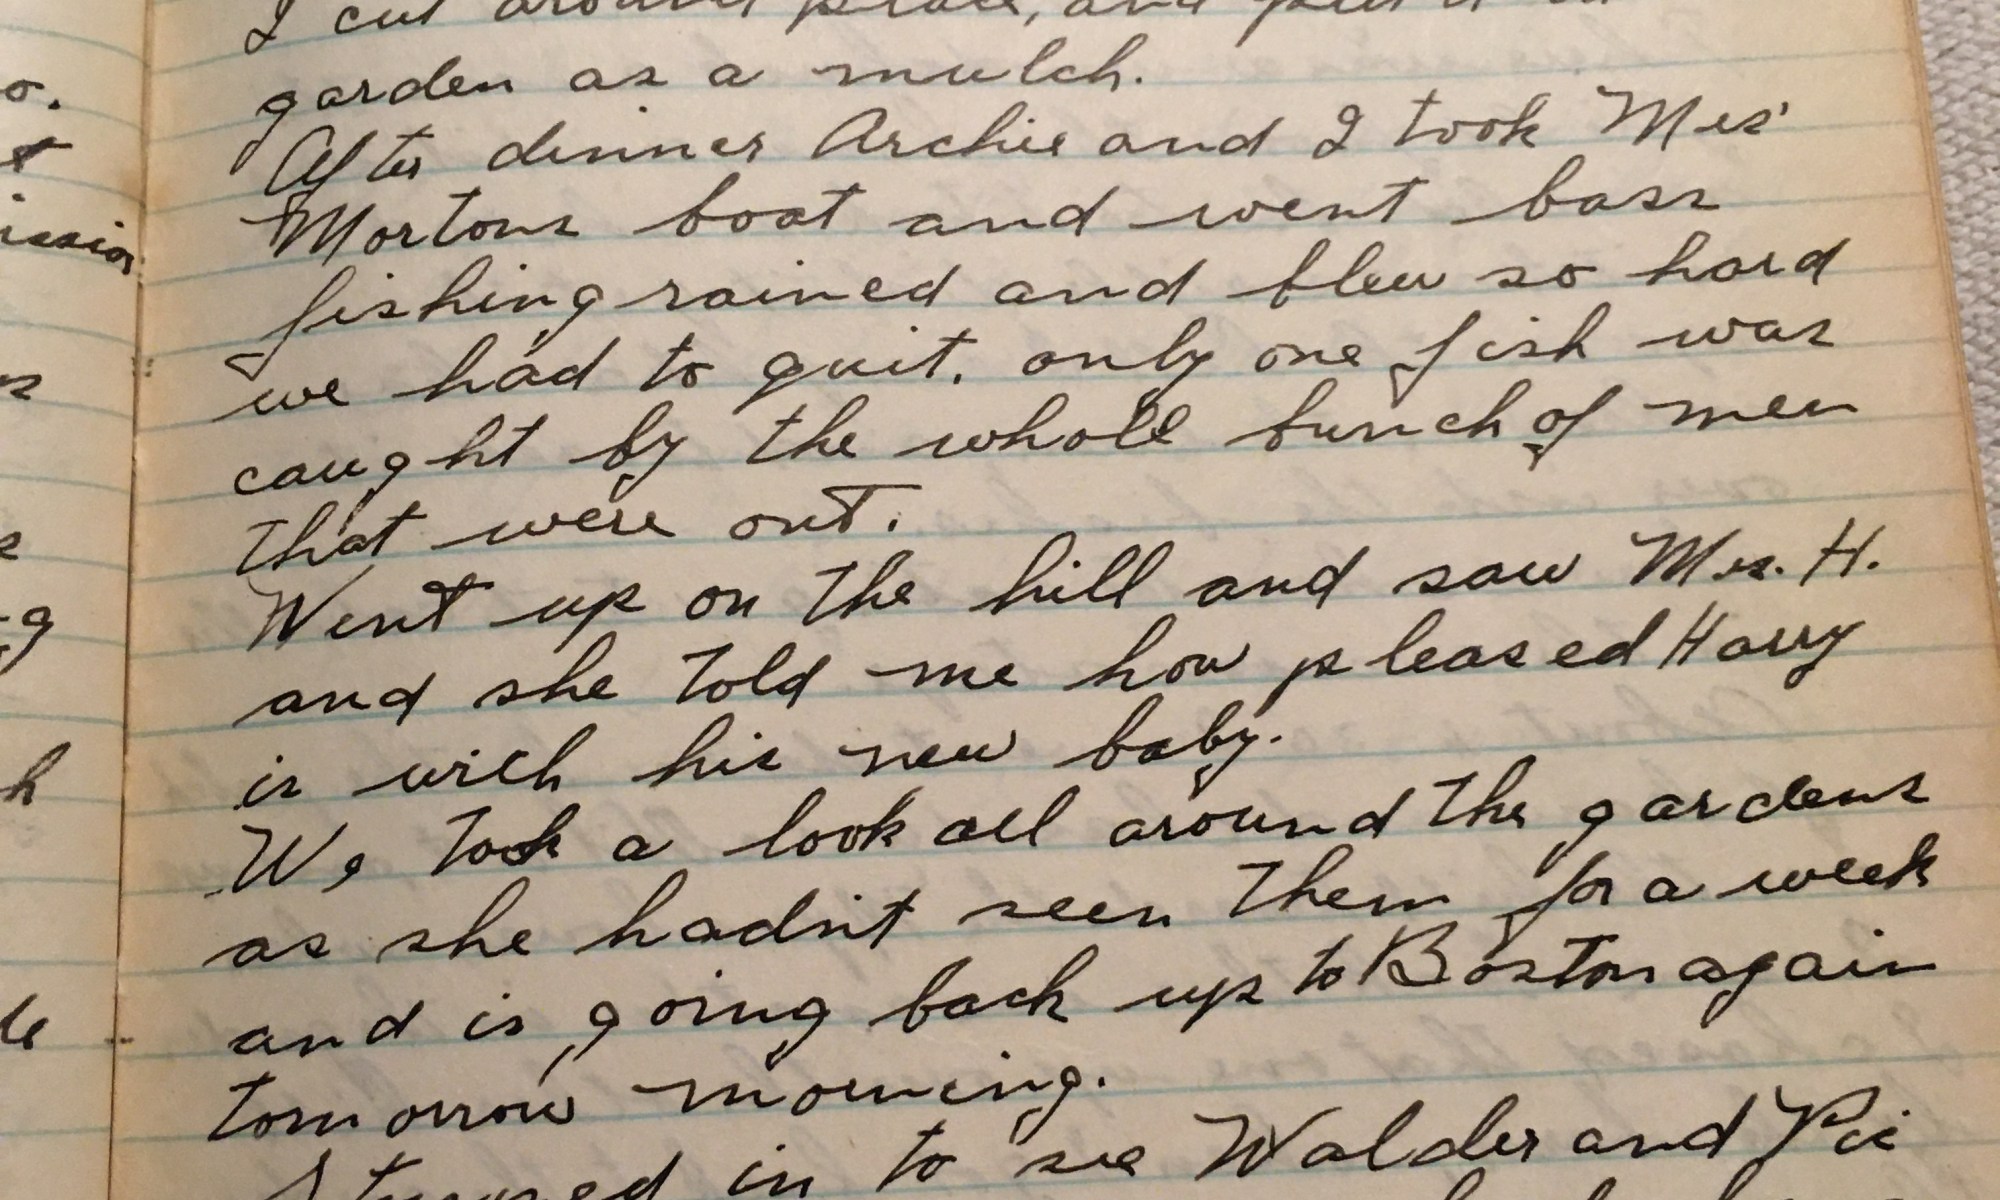 I cut around place, and put it in
garden as a mulch.
After dinner Archie and I took Mrs'
Mortons boat and went bass
fishing rained and blew so hard
we had to quit. only one fish was
caught by the whole bunch of men
that were out.
Went up on the hill and saw Mrs. H.
and she told me how pleased Harry
is with his new baby.
We took a look all around the gardens
as she hadn't seen them for a week
and is going back up to Boston again
tomorrow morning.
I turned in to see Walder and